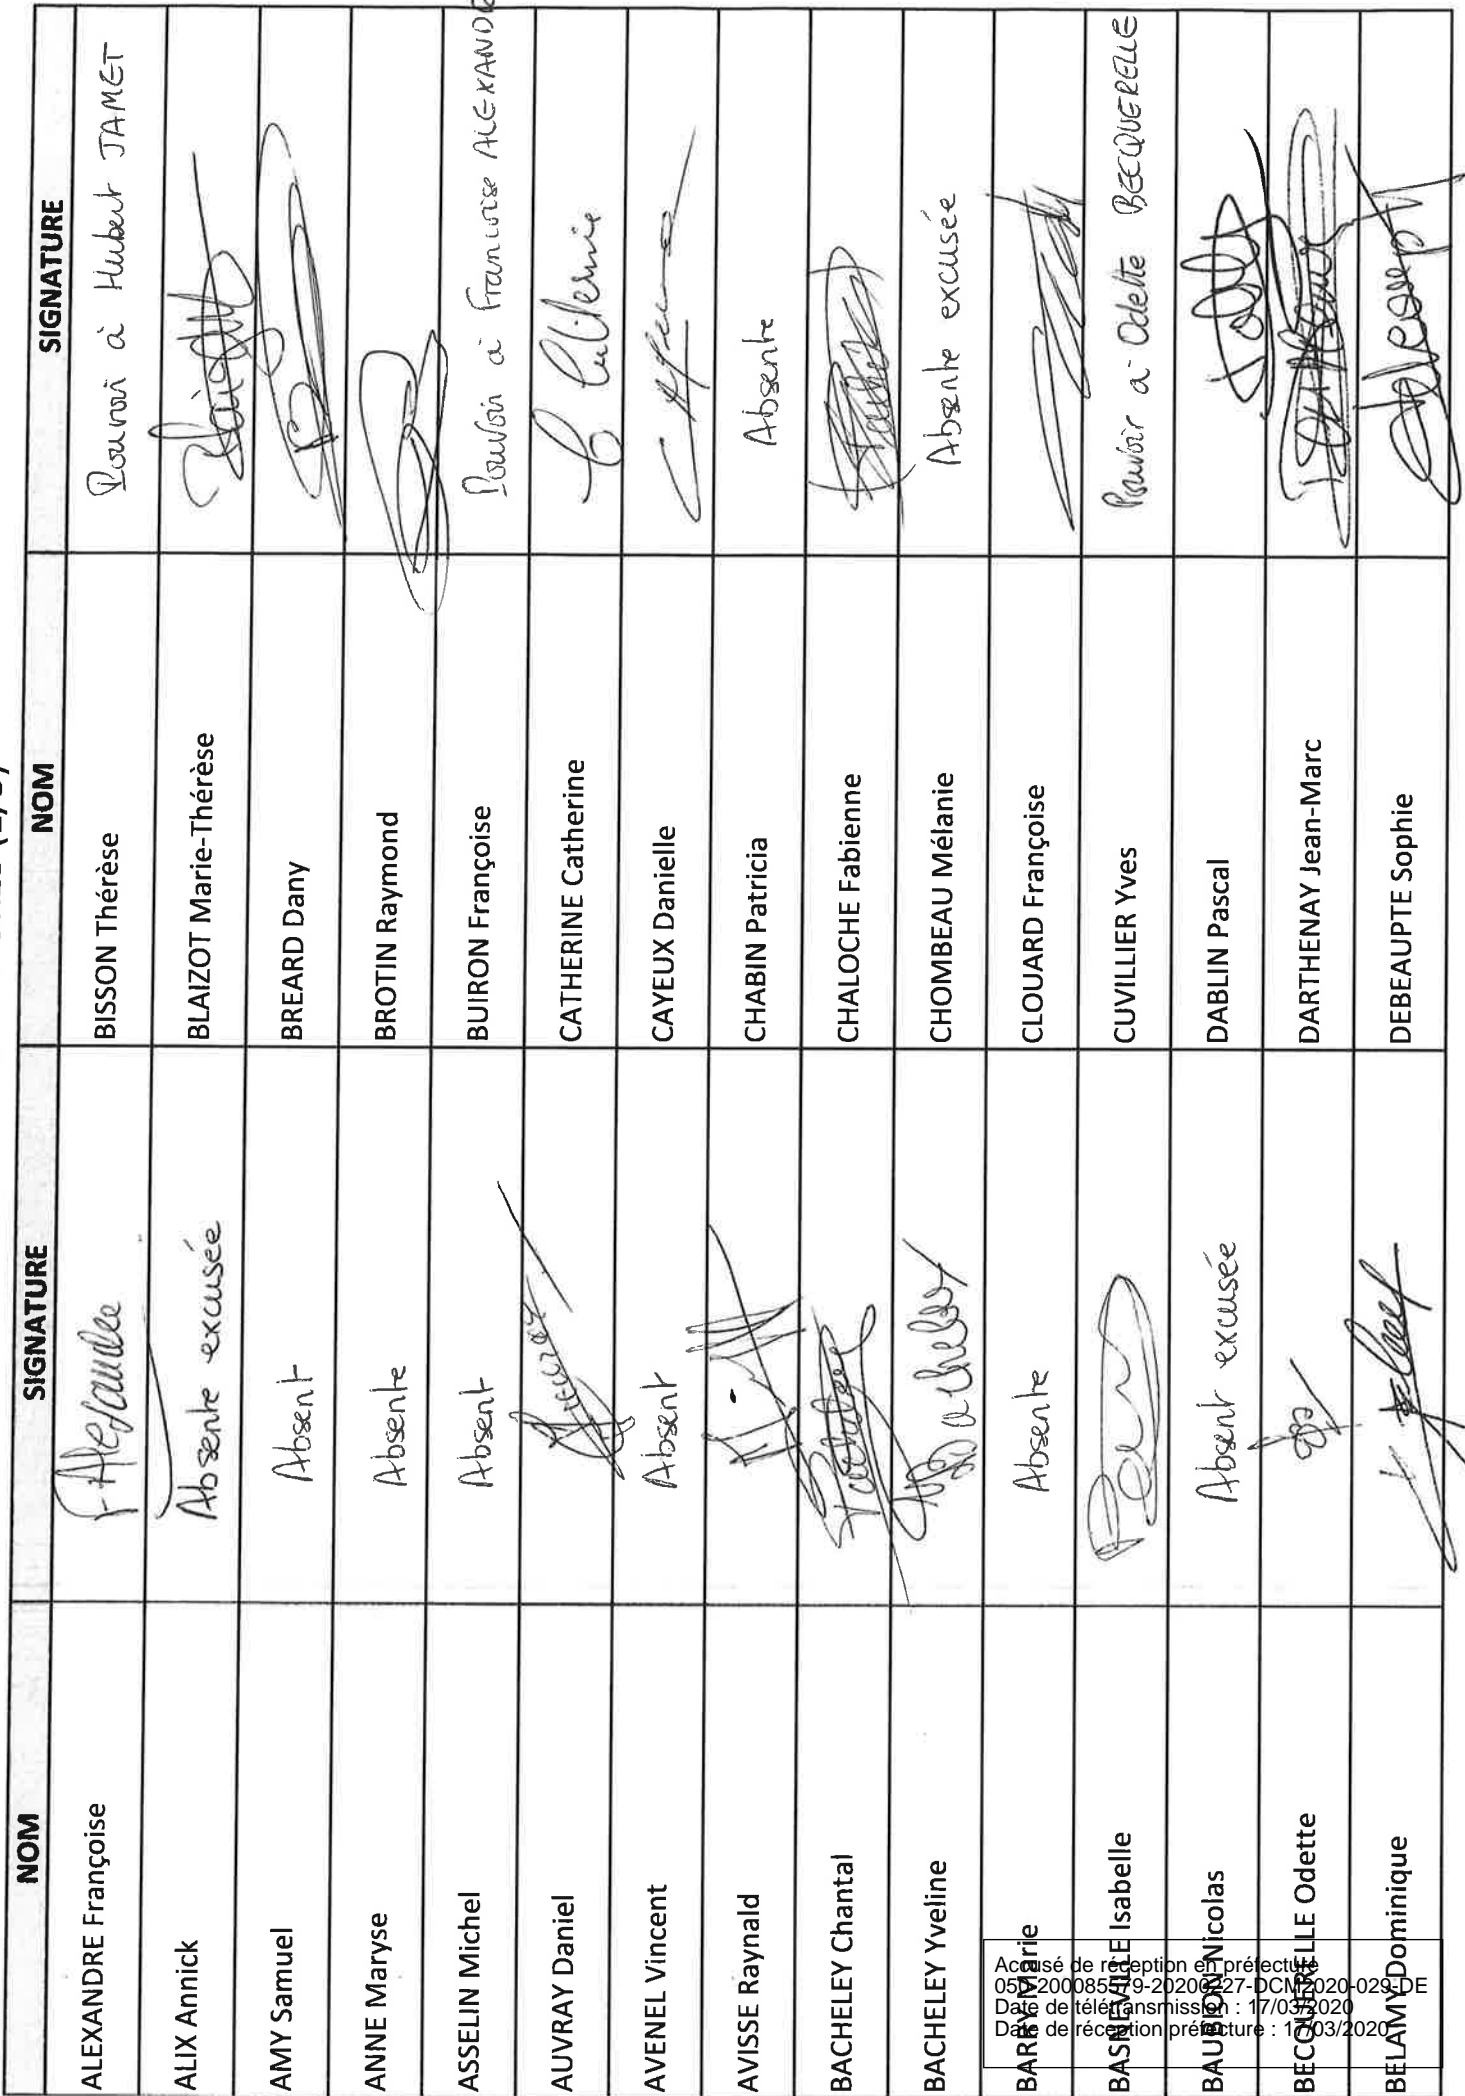 NOM SIGNATURE NOM SIGNATURE
ALEXANDRE Françoise F Alexandre BISSON Thérèse Pouvoir à Hubert JAMET
ALIX Annick Absente excusée BLAIZOT Marie-Thérèse
AMY Samuel Absent BREARD Dany
ANNE Maryse Absente BROTIN Raymond
ASSELIN Michel Absent BUIRON Françoise Pouvoir à Françoise ALEXANDR
AUVRAY Daniel CATHERINE Catherine
AVENEL Vincent Absent CAYEUX Danielle
AVISSE Raynald CHABIN Patricia Absente
BACHELEY Chantal CHALOCHE Fabienne
BACHELEY Yveline CHOMBEAU Mélanie Absente excusée
BARRY Marie Absente CLOUARD Françoise
BASNEVILLE Isabelle CUVILLIER Yves Pouvoir à Odette BECQUERELLE
BAUBION Nicolas Absent excusée DABLIN Pascal
BECQUERELLE Odette DARTHENAY Jean-Marc
BELAMY Dominique DEBEAUPTE Sophie
Accusé de réception en préfecture
050-200085519-20200227-DCM2020-029-DE
Date de télétransmission : 17/03/2020
Date de réception préfecture : 17/03/2020